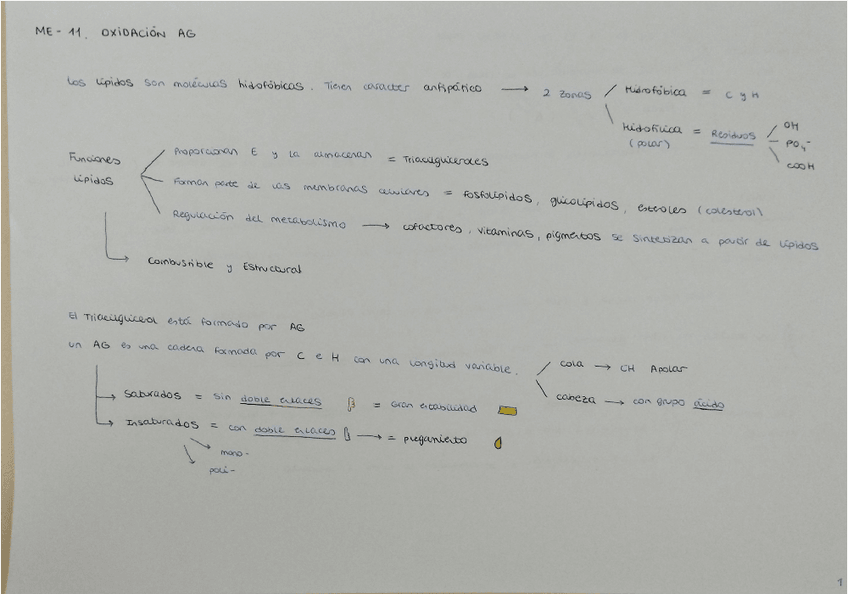 ME - 11. OXIDACIÓN AG
Los lípidos son moléculas hidrofóbicas. Tienen carácter anfipático → 2 zonas
Hidrofóbica = C y H
Hidrofílica = Residuos
(polar)
OH
PO₄⁻
COOH
Funciones
lípidos
Proporcionan E y la almacenan = Triacilgliceroles
Forman parte de las membranas celulares = fosfolípidos, glicolípidos, esteroles (colesterol)
Regulación del metabolismo → cofactores, vitaminas, pigmentos se sintetizan a partir de lípidos
Combustible y Estructural
El Triacilglicerol está formado por AG
un AG es una cadena formada por C e H con una longitud variable.
cola → CH Apolar
cabeza → con grupo ácido
Saturados = sin doble enlaces = Gran estabilidad
Insaturados = con doble enlaces → = plegamiento
mono-
poli-
1